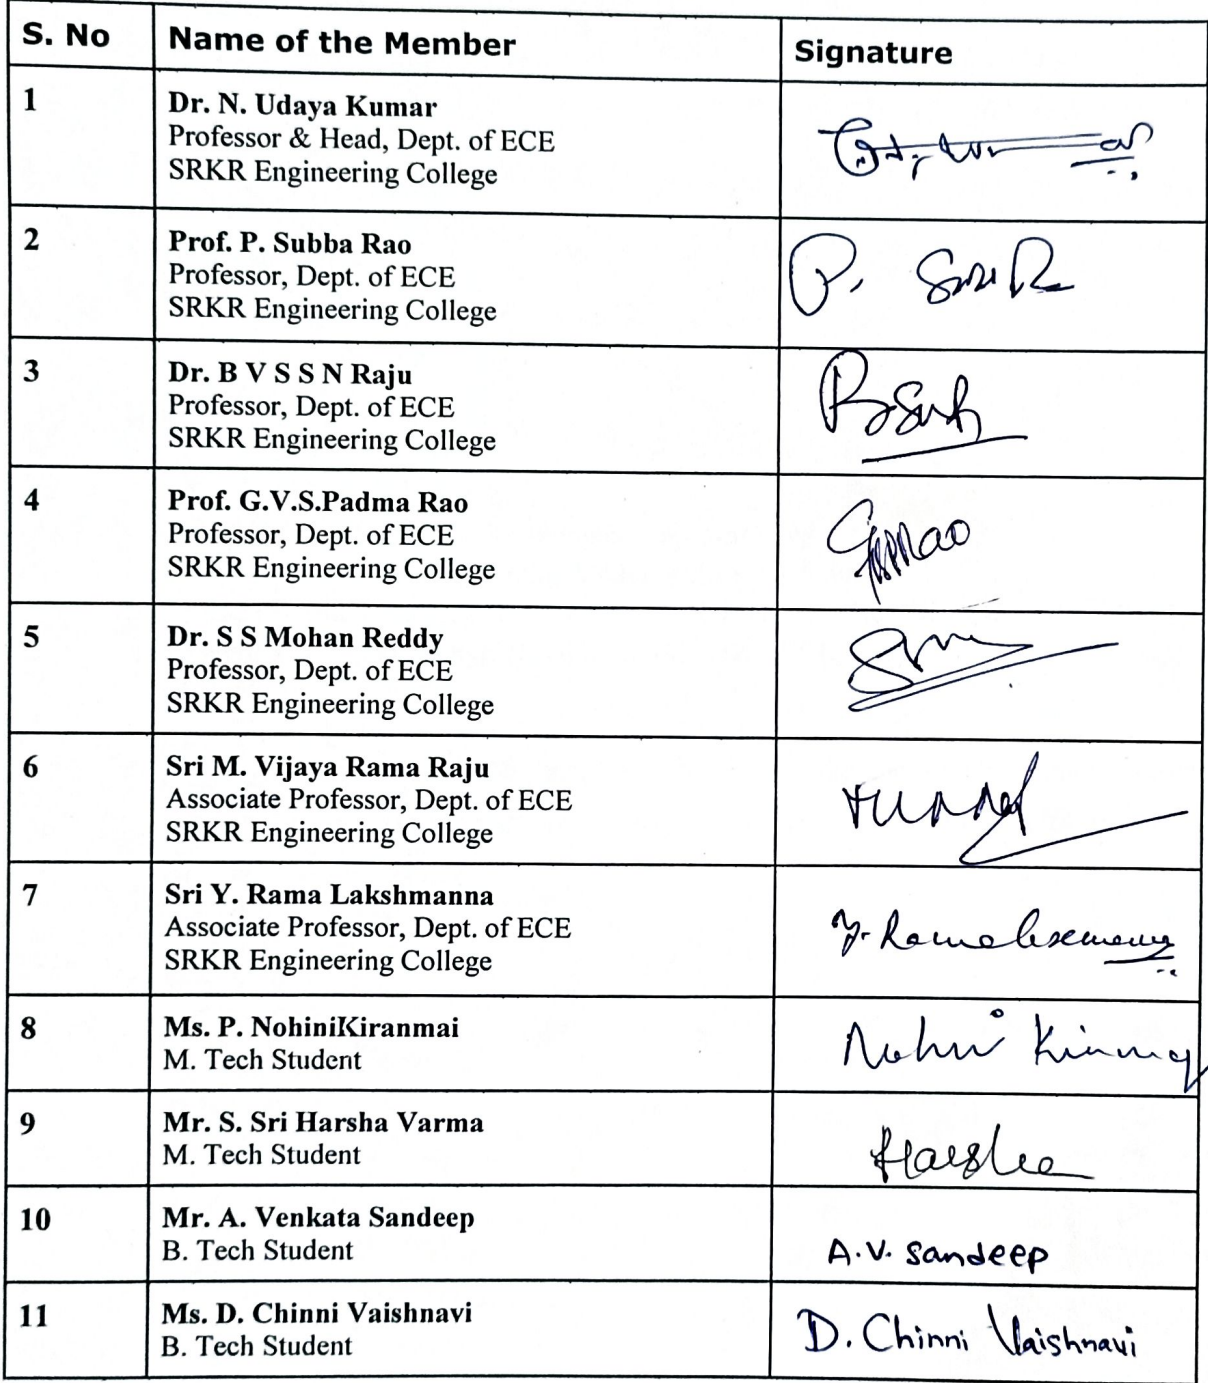 S. No Name of the Member Signature
1 Dr. N. Udaya Kumar
Professor & Head, Dept. of ECE
SRKR Engineering College
2 Prof. P. Subba Rao
Professor, Dept. of ECE
SRKR Engineering College
3 Dr. B V S S N Raju
Professor, Dept. of ECE
SRKR Engineering College
4 Prof. G.V.S.Padma Rao
Professor, Dept. of ECE
SRKR Engineering College
5 Dr. S S Mohan Reddy
Professor, Dept. of ECE
SRKR Engineering College
6 Sri M. Vijaya Rama Raju
Associate Professor, Dept. of ECE
SRKR Engineering College
7 Sri Y. Rama Lakshmanna
Associate Professor, Dept. of ECE
SRKR Engineering College
8 Ms. P. NohiniKiranmai
M. Tech Student
9 Mr. S. Sri Harsha Varma
M. Tech Student
Harsha
10 Mr. A. Venkata Sandeep
B. Tech Student
A.V. Sandeep
11 Ms. D. Chinni Vaishnavi
B. Tech Student
D. Chinni Vaishnavi